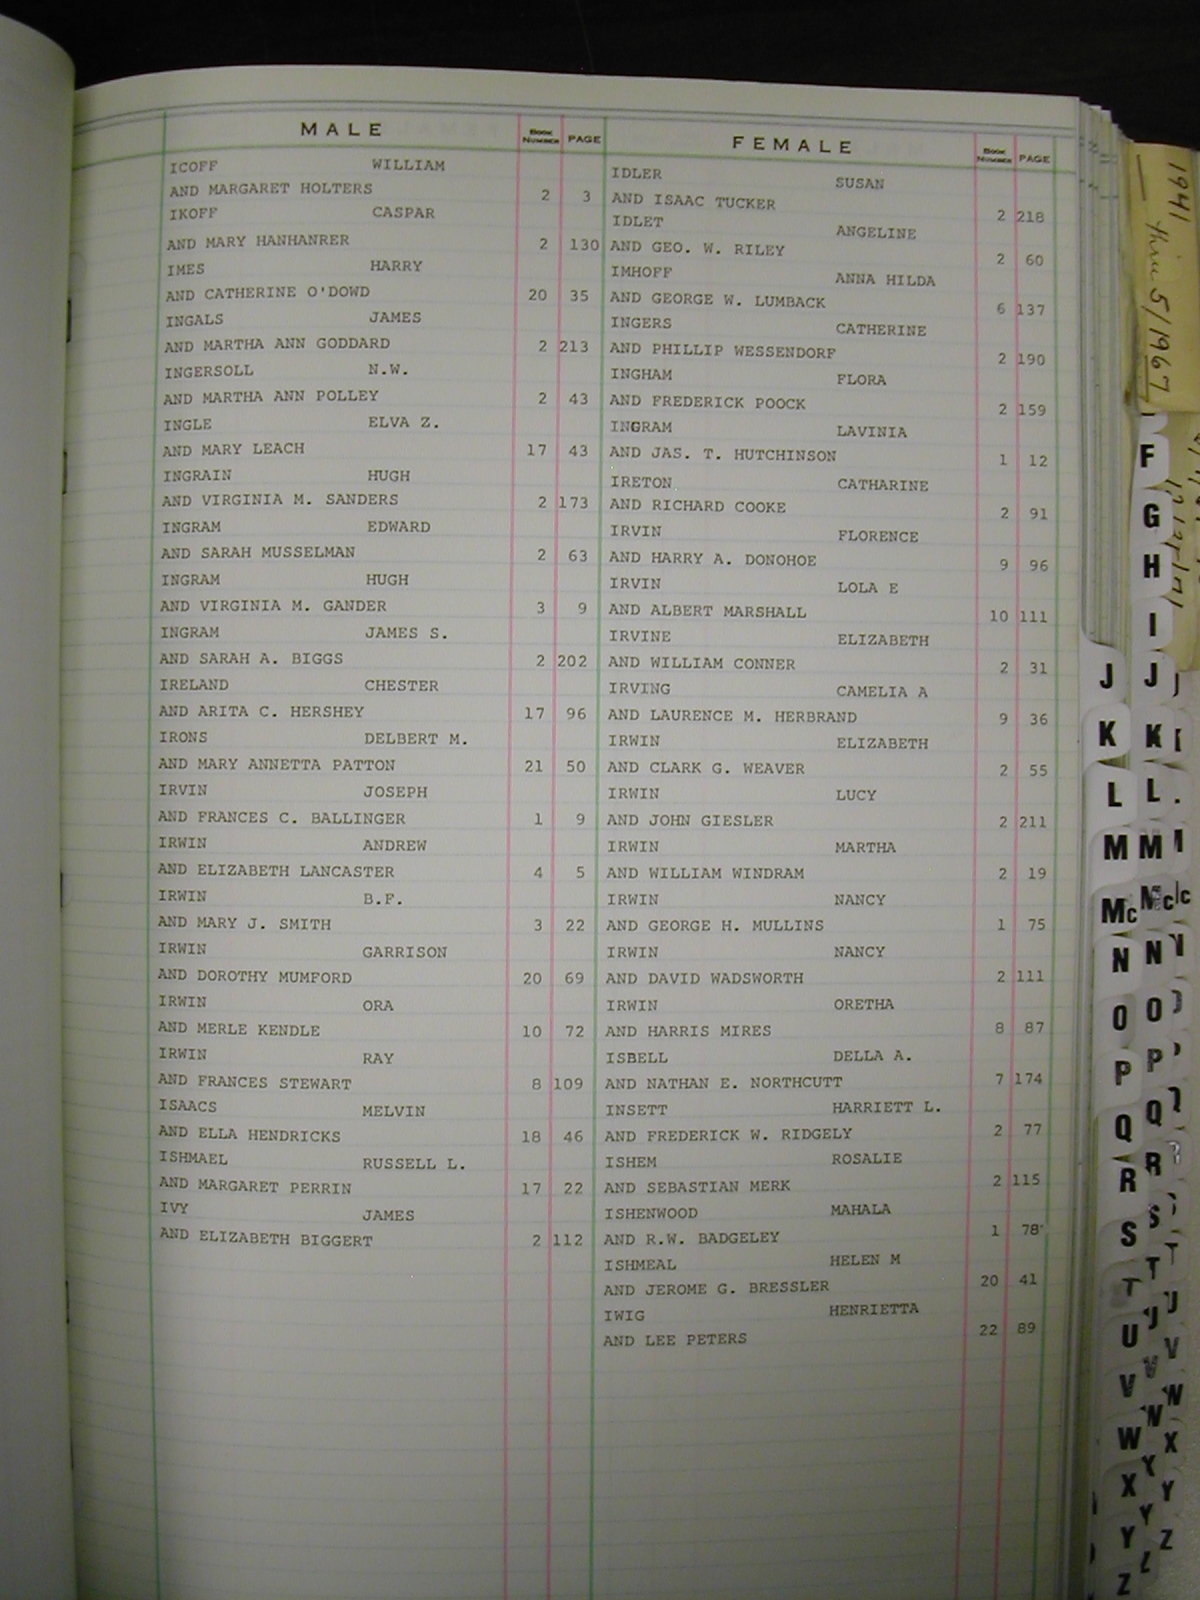 MALE BOOK NUMBER PAGE
ICOFF WILLIAM
AND MARGARET HOLTERS 2 3
IKOFF CASPAR
AND MARY HANHANRER 2 130
IMES HARRY
AND CATHERINE O'DOWD 20 35
INGALS JAMES
AND MARTHA ANN GODDARD 2 213
INGERSOLL N.W.
AND MARTHA ANN POLLEY 2 43
INGLE ELVA Z.
AND MARY LEACH 17 43
INGRAIN HUGH
AND VIRGINIA M. SANDERS 2 173
INGRAM EDWARD
AND SARAH MUSSELMAN 2 63
INGRAM HUGH
AND VIRGINIA M. GANDER 3 9
INGRAM JAMES S.
AND SARAH A. BIGGS 2 202
IRELAND CHESTER
AND ARITA C. HERSHEY 17 96
IRONS DELBERT M.
AND MARY ANNETTA PATTON 21 50
IRVIN JOSEPH
AND FRANCES C. BALLINGER 1 9
IRWIN ANDREW
AND ELIZABETH LANCASTER 4 5
IRWIN B.F.
AND MARY J. SMITH 3 22
IRWIN GARRISON
AND DOROTHY MUMFORD 20 69
IRWIN ORA
AND MERLE KENDLE 10 72
IRWIN RAY
AND FRANCES STEWART 8 109
ISAACS MELVIN
AND ELLA HENDRICKS 18 46
ISHMAEL RUSSELL L.
AND MARGARET PERRIN 17 22
IVY JAMES
AND ELIZABETH BIGGERT 2 112
FEMALE BOOK NUMBER PAGE
IDLER SUSAN
AND ISAAC TUCKER 2 218
IDLET ANGELINE
AND GEO. W. RILEY 2 60
IMHOFF ANNA HILDA
AND GEORGE W. LUMBACK 6 137
INGERS CATHERINE
AND PHILLIP WESSENDORF 2 190
INGHAM FLORA
AND FREDERICK POOCK 2 159
INGRAM LAVINIA
AND JAS. T. HUTCHINSON 1 12
IRETON CATHARINE
AND RICHARD COOKE 2 91
IRVIN FLORENCE
AND HARRY A. DONOHOE 9 96
IRVIN LOLA E
AND ALBERT MARSHALL 10 111
IRVINE ELIZABETH
AND WILLIAM CONNER 2 31
IRVING CAMELIA A
AND LAURENCE M. HERBRAND 9 36
IRWIN ELIZABETH
AND CLARK G. WEAVER 2 55
IRWIN LUCY
AND JOHN GIESLER 2 211
IRWIN MARTHA
AND WILLIAM WINDRAM 2 19
IRWIN NANCY
AND GEORGE H. MULLINS 1 75
IRWIN NANCY
AND DAVID WADSWORTH 2 111
IRWIN ORETHA
AND HARRIS MIRES 8 87
ISBELL DELLA A.
AND NATHAN E. NORTHCUTT 7 174
INSETT HARRIETT L.
AND FREDERICK W. RIDGELY 2 77
ISHEM ROSALIE
AND SEBASTIAN MERK 2 115
ISHENWOOD MAHALA
AND R.W. BADGELEY 1 78
ISHMEAL HELEN M
AND JEROME G. BRESSLER 20 41
IWIG HENRIETTA
AND LEE PETERS 22 89
1941
thru 5/1967
J
K
L
M
Mc
N
O
P
Q
R
S
T
U
V
W
X
Y
Z
F
G
H
I
J
K
L
M
Mc
N
O
P
Q
R
S
T
U
V
W
X
Y
Z